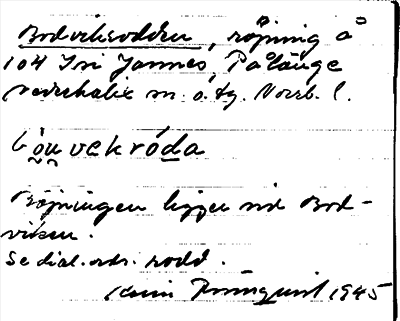 Bodviksrödden, röjning å
104 Ini Jannes Pålänge
Nederkalix m. o. tg. Norrb. l.
bòuvekróda
Röjningen ligger vid Bod-
viken.
Se dial. ordr. rödd.
1945